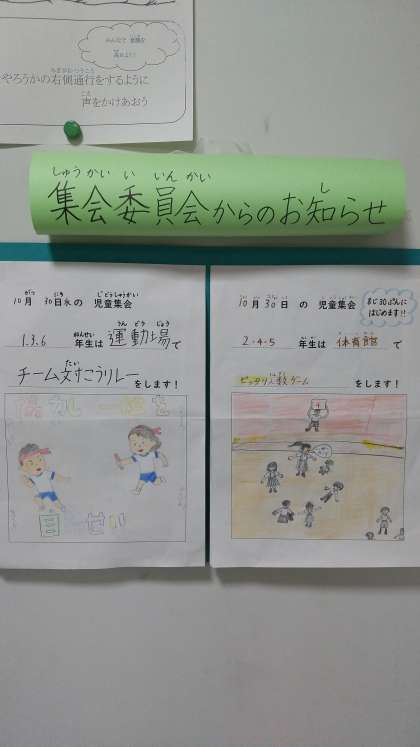 みんなで 意識を
高めよう!
やろうかの右側通行をするように
声をかけあおう
しゅうかい い いんかい
集会委員会からのお知らせ
10月 30日水の 児童集会
1.3.6 年生は 運動場 で
チーム対こうリレー をします!
目 せい
10月 30日 の 児童集会
8じ30ぷんに
はじめます!!
2・4・5 年生は 体育館 で
ピッタリ人数ゲーム をします!